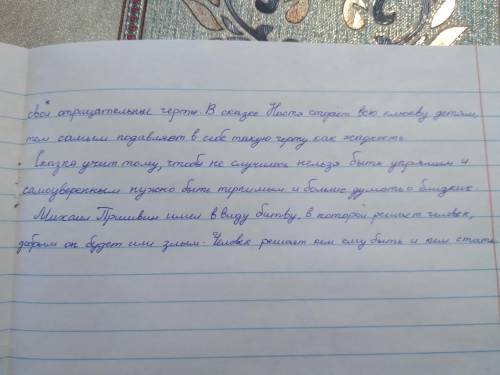 свои отрицательные черты. В сказке Настя отдаёт всю клюкву детям,
тем самым подавляет в себе такую черту как жадность.
Сказка учит тому, чтобы не случилось нельзя быть упрямым и
самоуверенным нужно быть терпимым и больше думать о близких.
Михаил Пришвин имел в виду битву. в которой решает человек,
добрым он будет или злым. Человек решает кем ему быть и кем стать